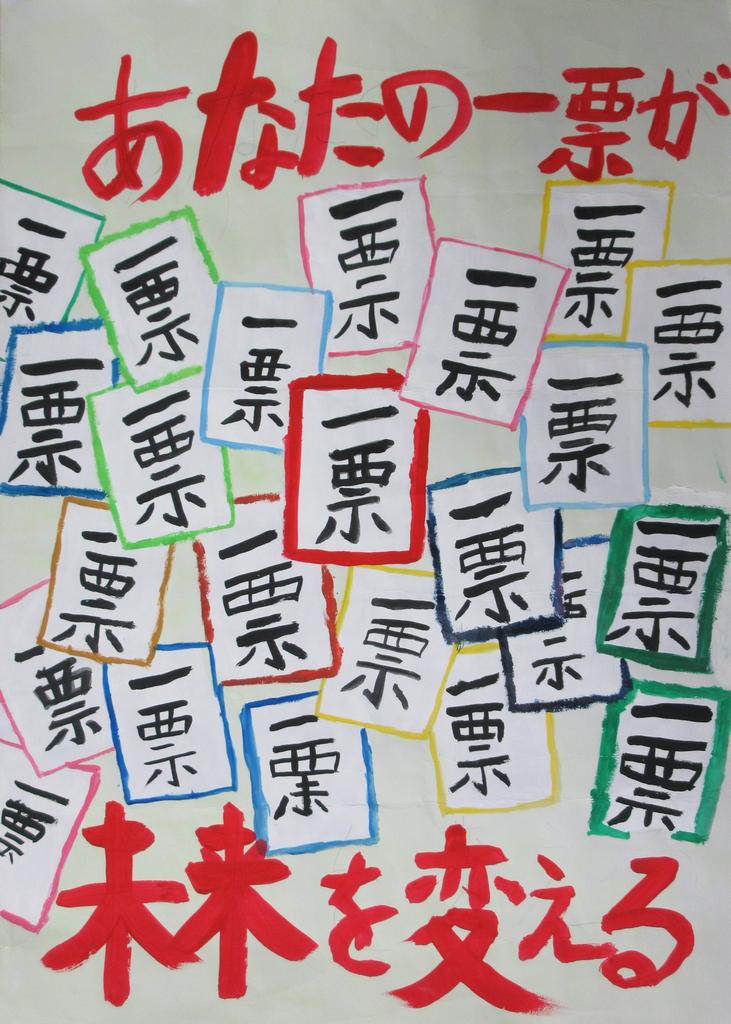 あなたの一票が
一票
一票
一票
一票
一票
一票
一票
一票
一票
一票
一票
一票
一票
一票
一票
一票
一票
一票
一票
一票
一票
一票
未来を変える